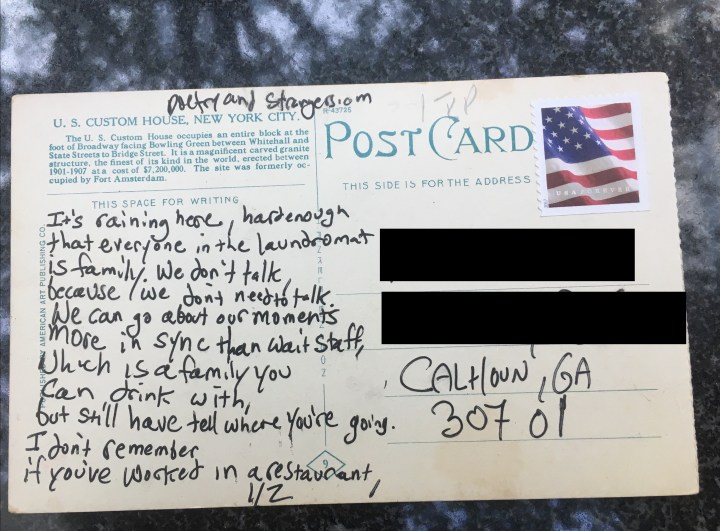 poetry and strangers iom
U. S. CUSTOM HOUSE, NEW YORK CITY.
The U. S. Custom House occupies an entire block at the
foot of Broadway facing Bowling Green between Whitehall and
State Streets to Bridge Street. It is a magnificent carved granite
structure, the finest of its kind in the world, erected between
1901-1907 at a cost of $7,200,000. The site was formerly oc-
cupied by Fort Amsterdam.
R-43725
POST CARD
THIS SIDE IS FOR THE ADDRESS
USA FOREVER
THIS SPACE FOR WRITING
It's raining here, hard enough
that everyone in the laundromat
is family. We don't talk,
because we don't need to talk.
We can go about our moments
more in sync than wait staff,
which is a family you
can drink with,
but still have tell where you're going.
I don't remember
if you've worked in a restaurant,
1/2
AMERICAN ART PUBLISHING CO.
CALHOUN, GA
30701
9